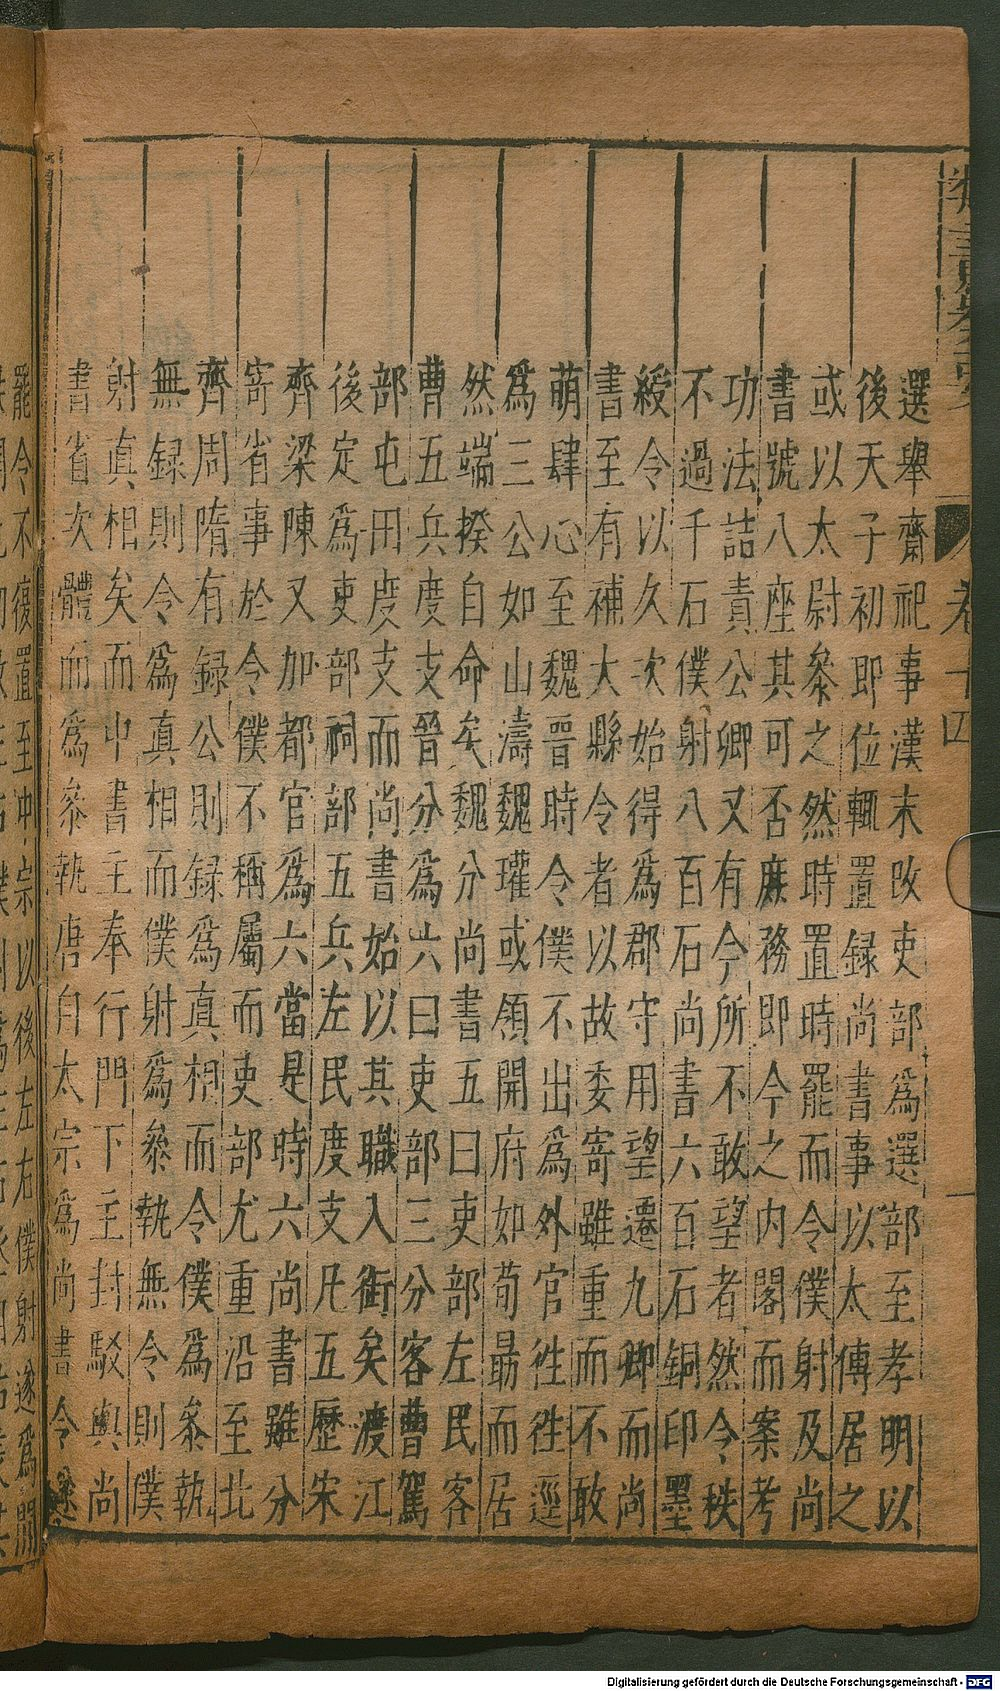 卷十四
選舉齋祀事漢末改吏部為選部至孝明以
後天子初即位輒置録尚書事以太傅居之
或以太尉參之然時置時罷而令僕射及尚
書號八座其可否庶務即今之内閣而案考
功法詰責公卿又有今所不敢望者然令秩
不過千石僕射八百石尚書六百石銅印墨
綬令以久次始得為郡守用望遷九卿而尚
書至有補大縣令者以故委寄雖重而不敢
萌肆心至魏晉時令僕不出為外官徃徃逕
為三公如山濤魏瓘或領開府如荀最而居
然端揆自命矣魏分尚書五曰吏部左民客
曹五兵度支晉分為六曰吏部三分客曹駕
部屯田度支而尚書始以其職入銜矣渡江
後定為吏部祠部五兵左民度支凡五歷宋
齊梁陳又加都官為六當是時六尚書雖分
寄省事於令僕不稱屬而吏部尤重沿至北
齊周隋有録公則録為真相而令僕為參執
無録則令為真相而僕射為參執無令則僕
射真相矣而中書主奉行門下主封駁與尚
書省次體而為參執唐自太宗為尚書令遂
罷令不復置至沖宗以後左右僕射遂為閒
Digitalisierung gefördert durch die Deutsche Forschungsgemeinschaft - DFG